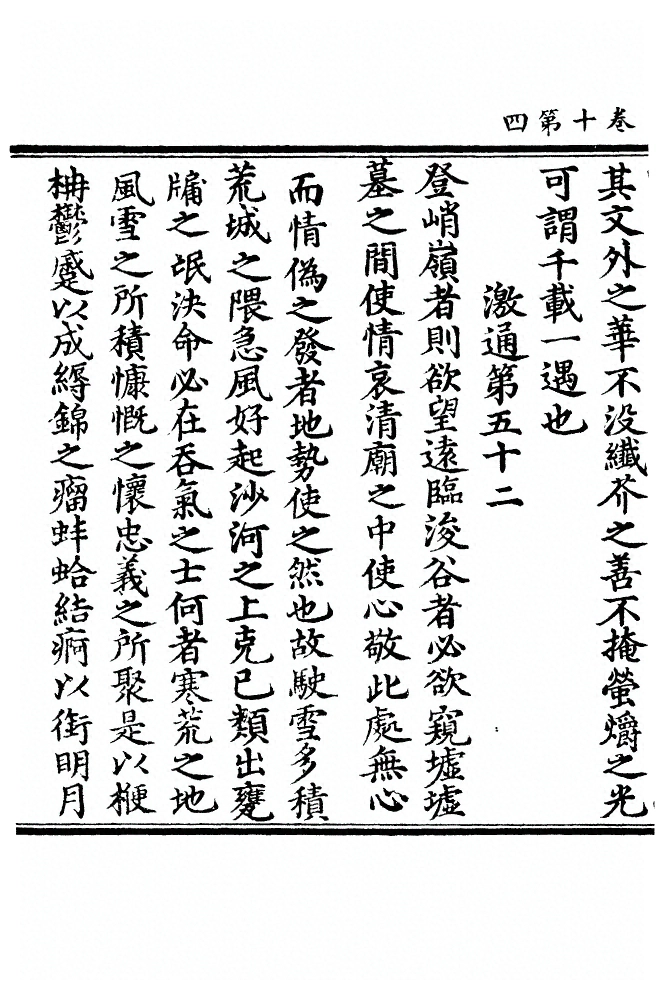 卷十第四
其文外之華不没纖芥之善不掩螢爝之光
可謂千載一遇也
激通第五十二
登峭嶺者則欲望遠臨浚谷者必欲窺墟墟
墓之間使情哀清廟之中使心敬此處無心
而情偽之發者地勢使之然也故駛雪多積
荒城之隈急風好起沙河之上克已類出甕
牖之氓決命必在吞氣之士何者寒荒之地
風雪之所積慷慨之懷忠義之所聚是以楩
枏鬱蹙以成縟錦之瘤蚌蛤結痾以銜明月